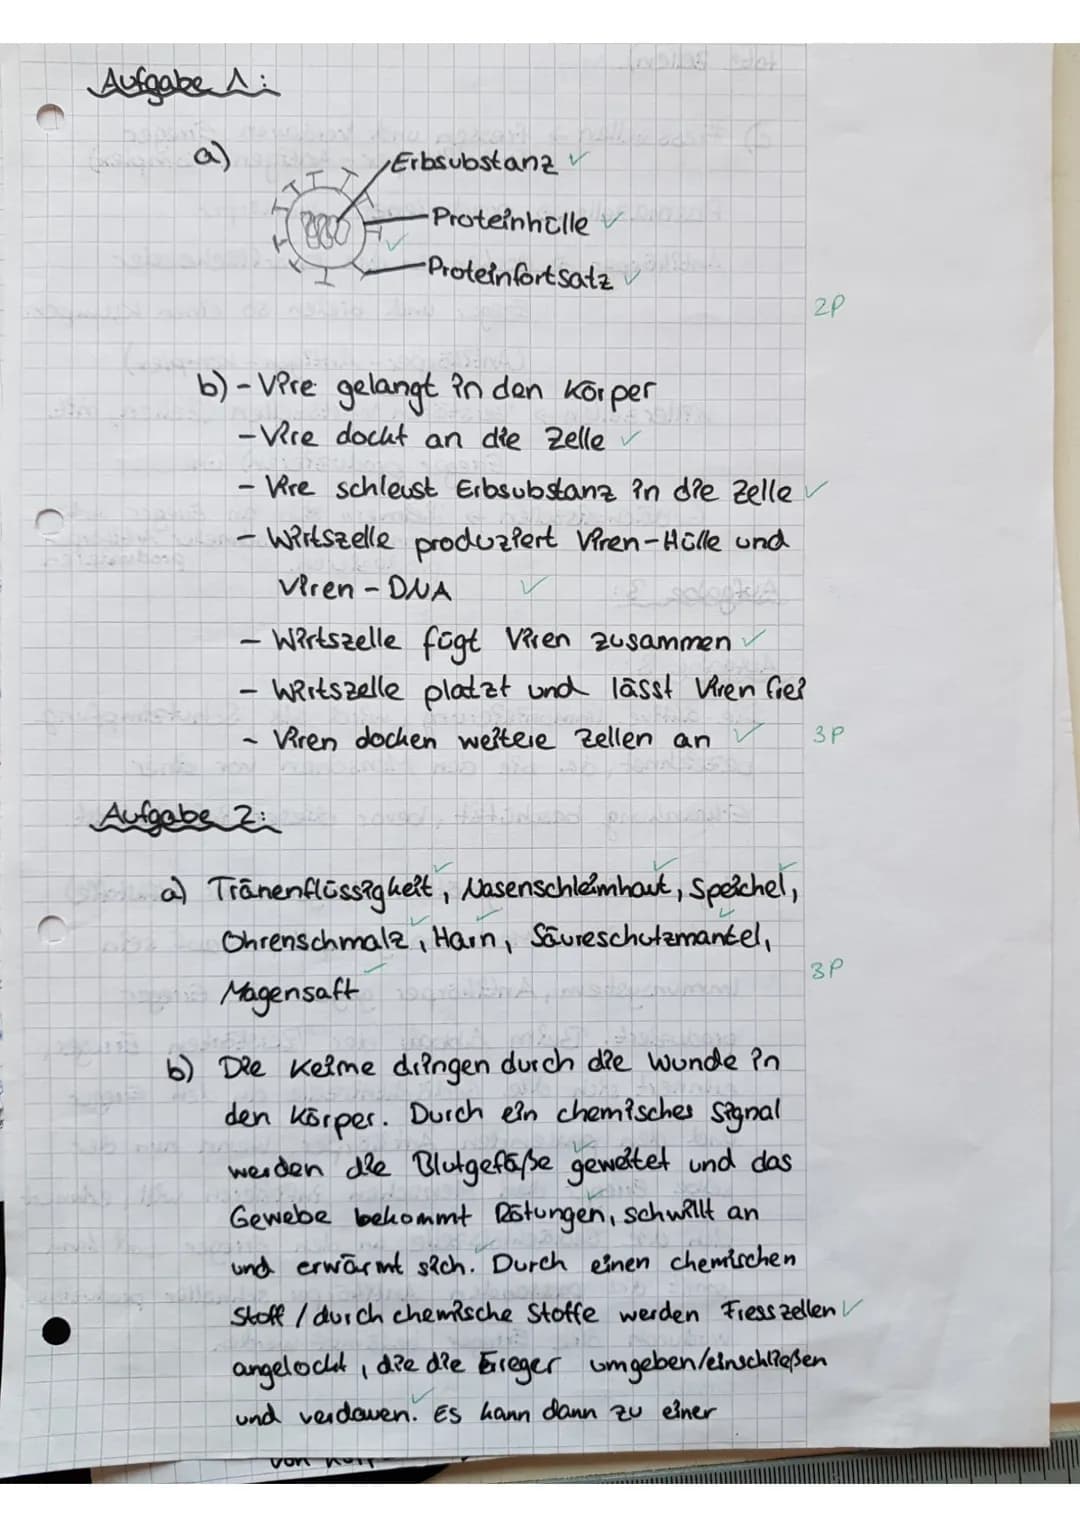 Aufgabe 1:
a)
Erbsubstanz ✓
Proteinhülle ✓
Proteinfortsatz ✓
2P
b) - Vire gelangt in den Körper
- Vire dockt an die Zelle ✓
- Vire schleust Erbsubstanz in die Zelle ✓
- Wirtszelle produziert Viren-Hülle und
Viren - DNA ✓
- Wirtszelle fügt Viren zusammen ✓
- Wirtszelle platzt und lässt Viren frei
- Viren docken weitere Zellen an ✓ 3P
Aufgabe 2:
a) Tränenflüssigkeit, Nasenschleimhaut, Speichel,
Ohrenschmalz, Harn, Säureschutzmantel,
3P
Magensaft
b) Die Keime dringen durch die Wunde in
den Körper. Durch ein chemisches Signal
werden die Blutgefäße geweitet und das
Gewebe bekommt Rötungen, schwillt an
und erwärmt sich. Durch einen chemischen
Stoff / durch chemische Stoffe werden Fresszellen ✓
angelockt, die die Erreger umgeben/einschließen
und verdauen. Es kann dann zu einer
von